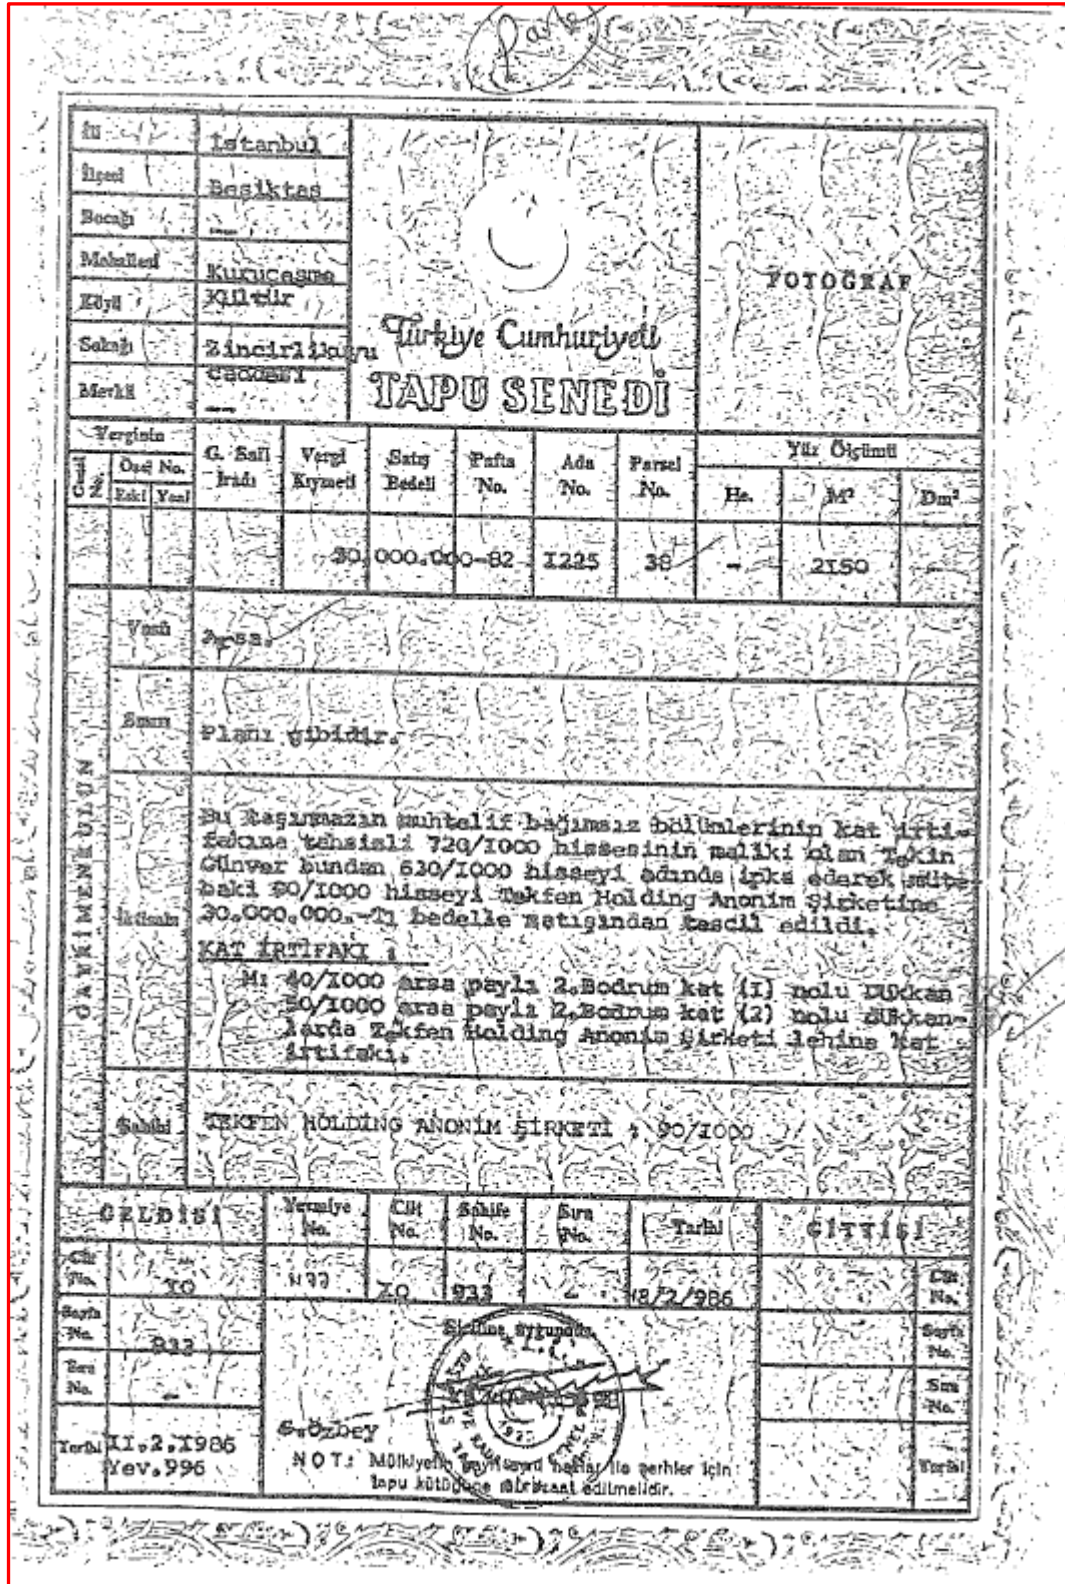 İli
İstanbul
İlçesi
Beşiktaş
Bucağı
Mahallesi
Kuruçeşme
Köyü
Kültür
Sokağı
Zincirlikuyu
Caddesi
Mevkii
Türkiye Cumhuriyeti
TAPU SENEDİ
FOTOĞRAF
Verginin
Özel No.
Eski Yeni
G. Safi
İradı
Vergi
Kıymeti
Satış
Bedeli
Pafta
No.
Ada
No.
Parsel
No.
Yüz Ölçümü
He. M² Dm²
30.000.000- 82 I225 38 - 2I50
GAYRİMENKULÜN
Vasfı
Arsa.
Sınırı
Planı gibidir.
İktisabı
Bu taşınmazın muhtelif bağımsız bölümlerinin kat irti-
fakına tahsisli 720/I000 hissesinin maliki olan Tekin
Günver bundan 630/I000 hisseyi adında ipka ederek müte
baki 90/I000 hisseyi Tekfen Holding Anonim Şirketine
30.000.000.-Tl bedelle satışından tescil edildi.
KAT İRTİFAKI :
M: 40/I000 arsa paylı 2.Bodrum kat (I) nolu Dükkan
50/I000 arsa paylı 2.Bodrum kat (2) nolu dükkan-
larda Tekfen Holding Anonim Şirketi lehine kat
irtifakı.
Sahibi
TEKFEN HOLDİNG ANONİM ŞİRKETİ : 90/I000
GELDİSİ
Yevmiye
No.
Cilt
No.
Sahife
No.
Sıra
No.
Tarihi
GİTTİSİ
Cilt
No.
I0
1177 I0 933 - 18/2/986
Cilt
No.
Sayfa
No.
933
Siciline uygundur.
Sayfa
No.
Sıra
No.
-
Sıra
No.
S.Özbey
Tarihi
II.2.I986
Yev.996
NOT: Mülkiyetin gayri ayni haklar ile şerhler için
tapu kütüğüne müracaat edilmelidir.
Tarihi